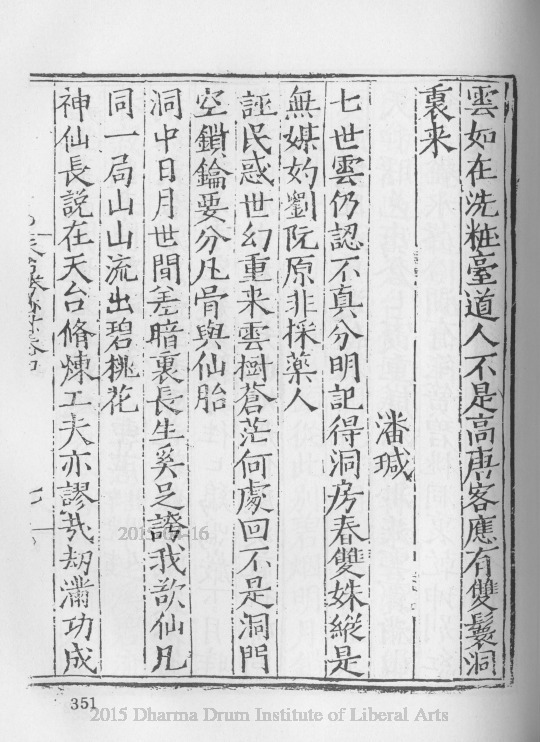 雲如在洗粧臺道人不是高唐客應有雙鬟洞
裏来
潘瑊
七世雲仍認不真分明記得洞房春雙姝縱是
無媒妁劉阮原非採藥人
誣民惑世幻重来雲樹蒼茫何處回不是洞門
空鎖鑰要分凡骨與仙胎
洞中日月世間差暗裏長生奚足誇我欲仙凡
同一局山山流出碧桃花
神仙長説在天台脩煉工夫亦謬哉劫滿功成
351
2015 Dharma Drum Institute of Liberal Arts